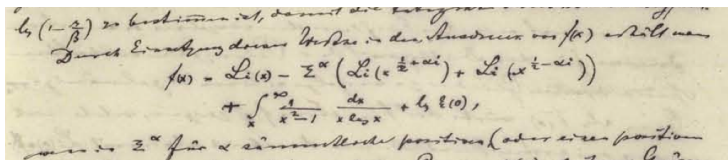 lg (1 - s/β) zu bestimmen ist, damit die
Durch Einsetzung dieser Werthe in den Ausdruck von f(x) erhält man
f(x) = Li(x) - Σ^α (Li(x^(1/2 + αi)) + Li(x^(1/2 - αi)))
+ ∫_x^∞ 1/(x²-1) dx/(x log x) + lg ξ(0),
wenn in Σ^α für α sämmtliche positiven (oder einen positiven